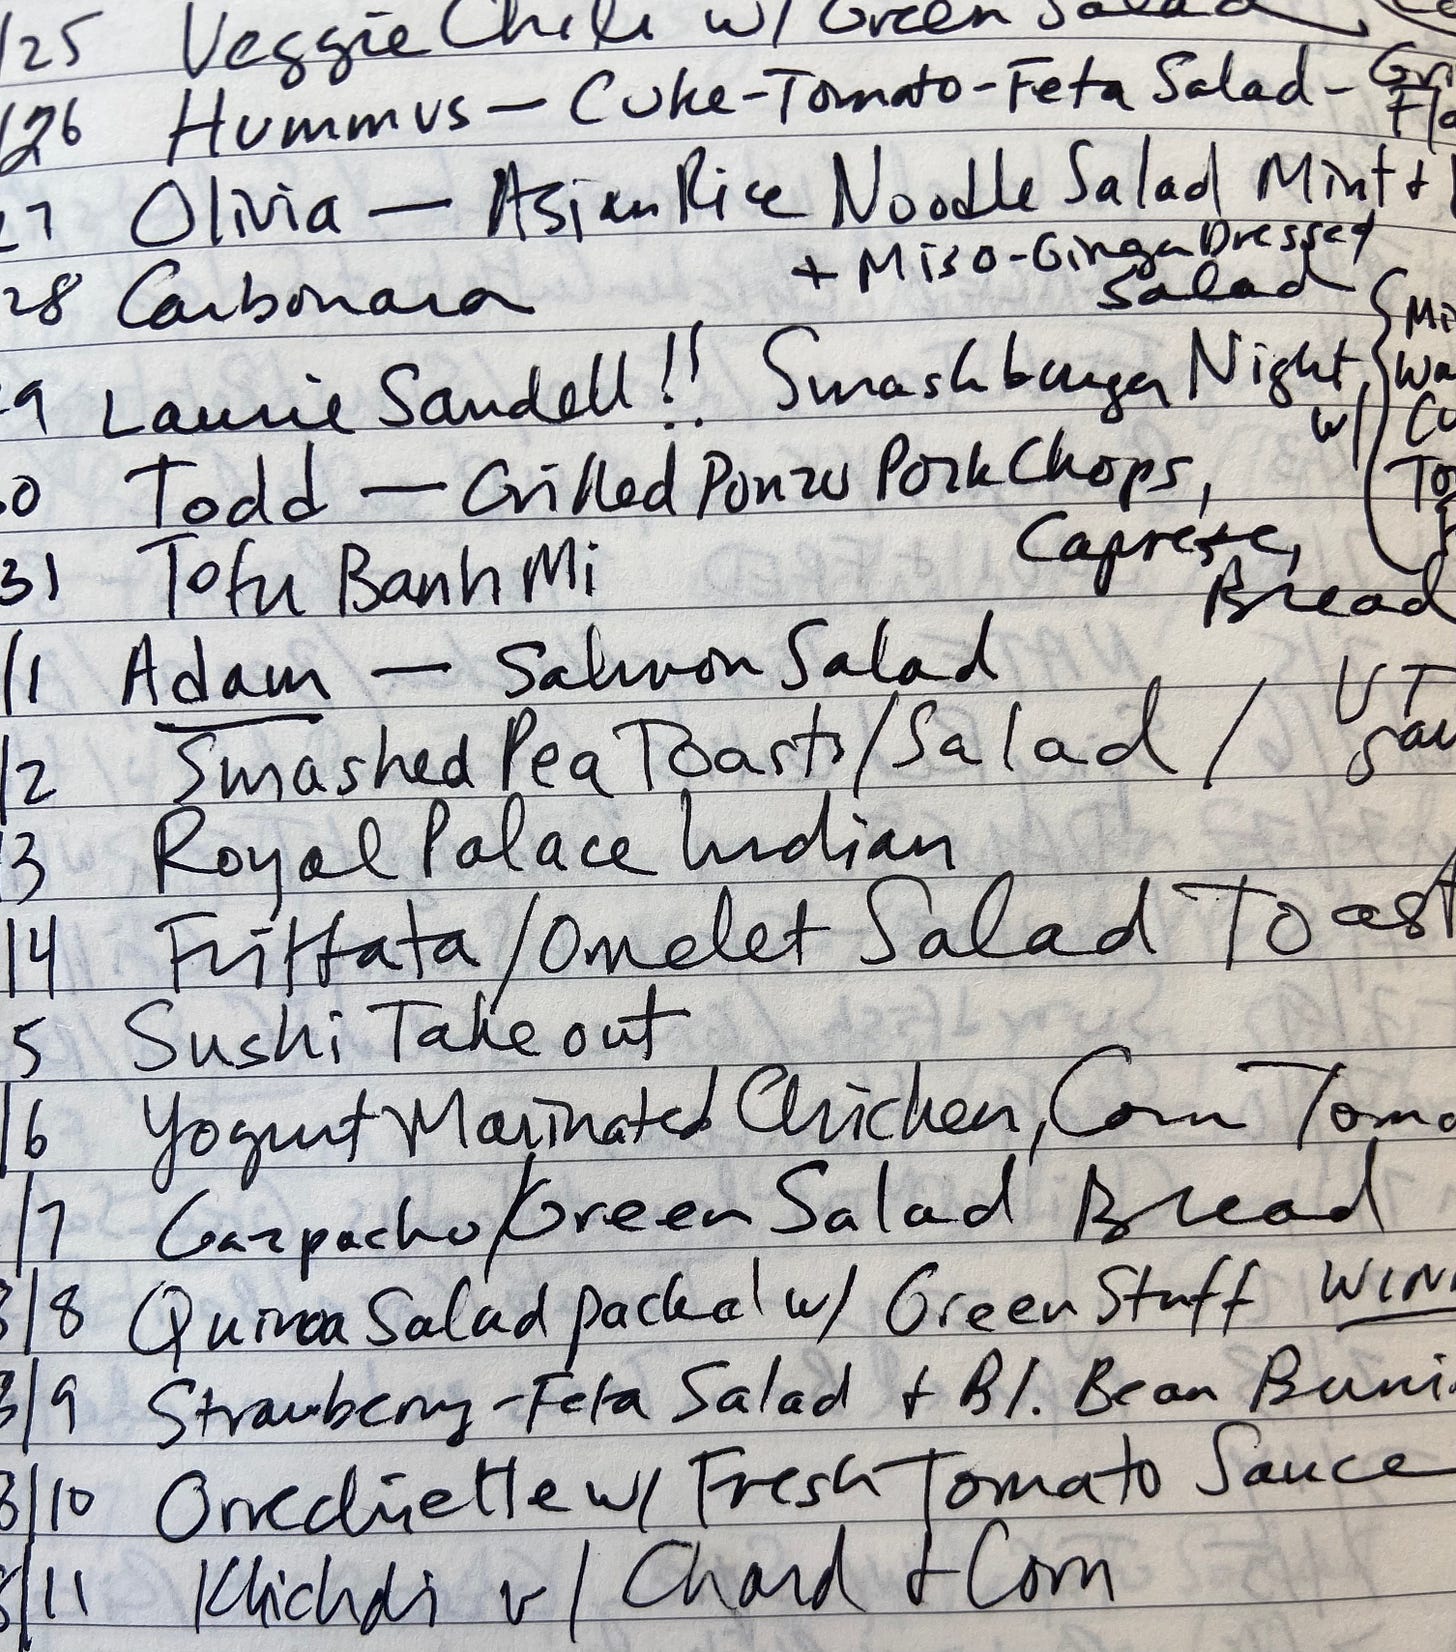 /25 Veggie Chili w/ Green Salad
/26 Hummus — Cuke-Tomato-Feta Salad -
27 Olivia — Asian Rice Noodle Salad Mint +
+ Miso-Ginger Dressed
Salad
28 Carbonara
9 Laurie Sandell!! Smashburger Night,
w/
0 Todd — Grilled Ponzu Pork Chops,
Caprese,
Bread
31 Tofu Banh Mi
/1 Adam — Salmon Salad
/2 Smashed Pea Toasts/Salad /
3 Royal Palace Indian
/4 Frittata/Omelet Salad Toast
5 Sushi Take out
/6 Yogurt Marinated Chicken, Corn
/7 Gazpacho/Green Salad Bread
8/8 Quinoa Salad packed w/ Green Stuff
8/9 Strawberry-Feta Salad + Bl. Bean
8/10 Orrechiette w/ Fresh Tomato Sauce
8/11 Khichdi w/ Chard + Corn